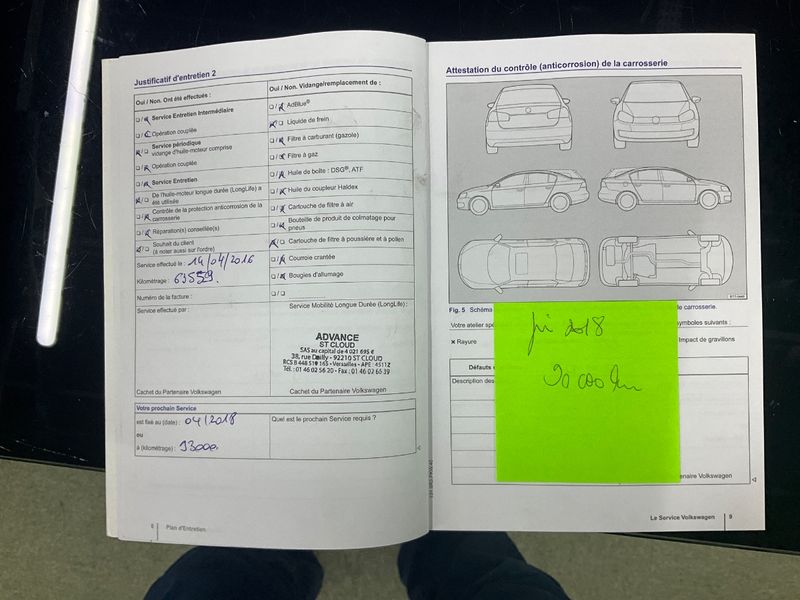 Justificatif d'entretien 2
Oui / Non. Ont été effectués :
Service Entretien Intermédiaire
Opération couplée
Service périodique
vidange d'huile-moteur comprise
Opération couplée
Service Entretien
De l'huile-moteur longue durée (LongLife) a
été utilisée
Contrôle de la protection anticorrosion de la
carrosserie
Réparation(s) conseillée(s)
Souhait du client
(à noter aussi sur l'ordre)
Service effectué le : 14/04/2016
Kilométrage :
Numéro de la facture :
Service effectué par :
Oui / Non. Vidange/remplacement de :
AdBlue®
Liquide de frein
Filtre à carburant (gazole)
Filtre à gaz
Huile de boîte : DSG®, ATF
Huile du coupleur Haldex
Cartouche de filtre à air
Bouteille de produit de colmatage pour
pneus
Cartouche de filtre à poussière et à pollen
Courroie crantée
Bougies d'allumage
Service Mobilité Longue Durée (LongLife) :
ADVANCE
ST CLOUD
SAS au capital de 4 021 695 €
38, rue Dailly - 92210 ST CLOUD
RCS B 448 519 165 - Versailles - APE : 4511Z
Tél. : 01 46 02 56 20 - Fax : 01 46 02 66 39
Cachet du Partenaire Volkswagen
Cachet du Partenaire Volkswagen
Votre prochain Service
est fixé au (date) : 04/2018
ou
à (kilométrage) : 93000
Quel est le prochain Service requis ?
8 Plan d'Entretien
Attestation du contrôle (anticorrosion) de la carrosserie
Fig. 5 Schéma
le carrosserie.
Votre atelier
symboles suivants :
× Rayure
Impact de gravillons
Défauts
Description des
2018
90 000 km
enaire Volkswagen
Le Service Volkswagen 9